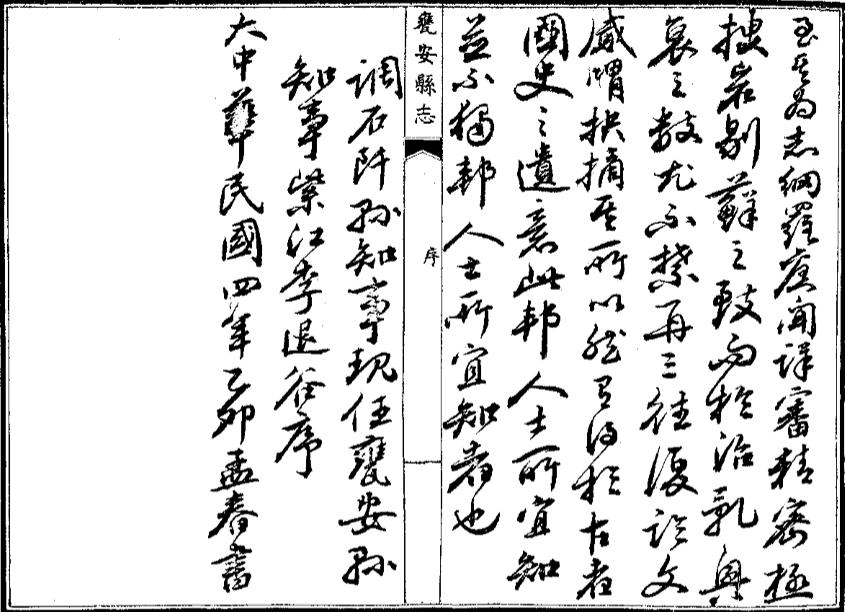 至其為志網羅舊聞詳審精密極
搜岩剔蘚之致而於治亂興
衰之數尤不禁再三往復論文
感喟抉摘其所以然有得於古者
國史之遺意此邦人士所宜知
並不獨邦人士所宜知者也
調石阡縣知事現任甕安縣
知事紫江李退谷序
大中華民國四年乙卯孟春書
甕安縣志
序